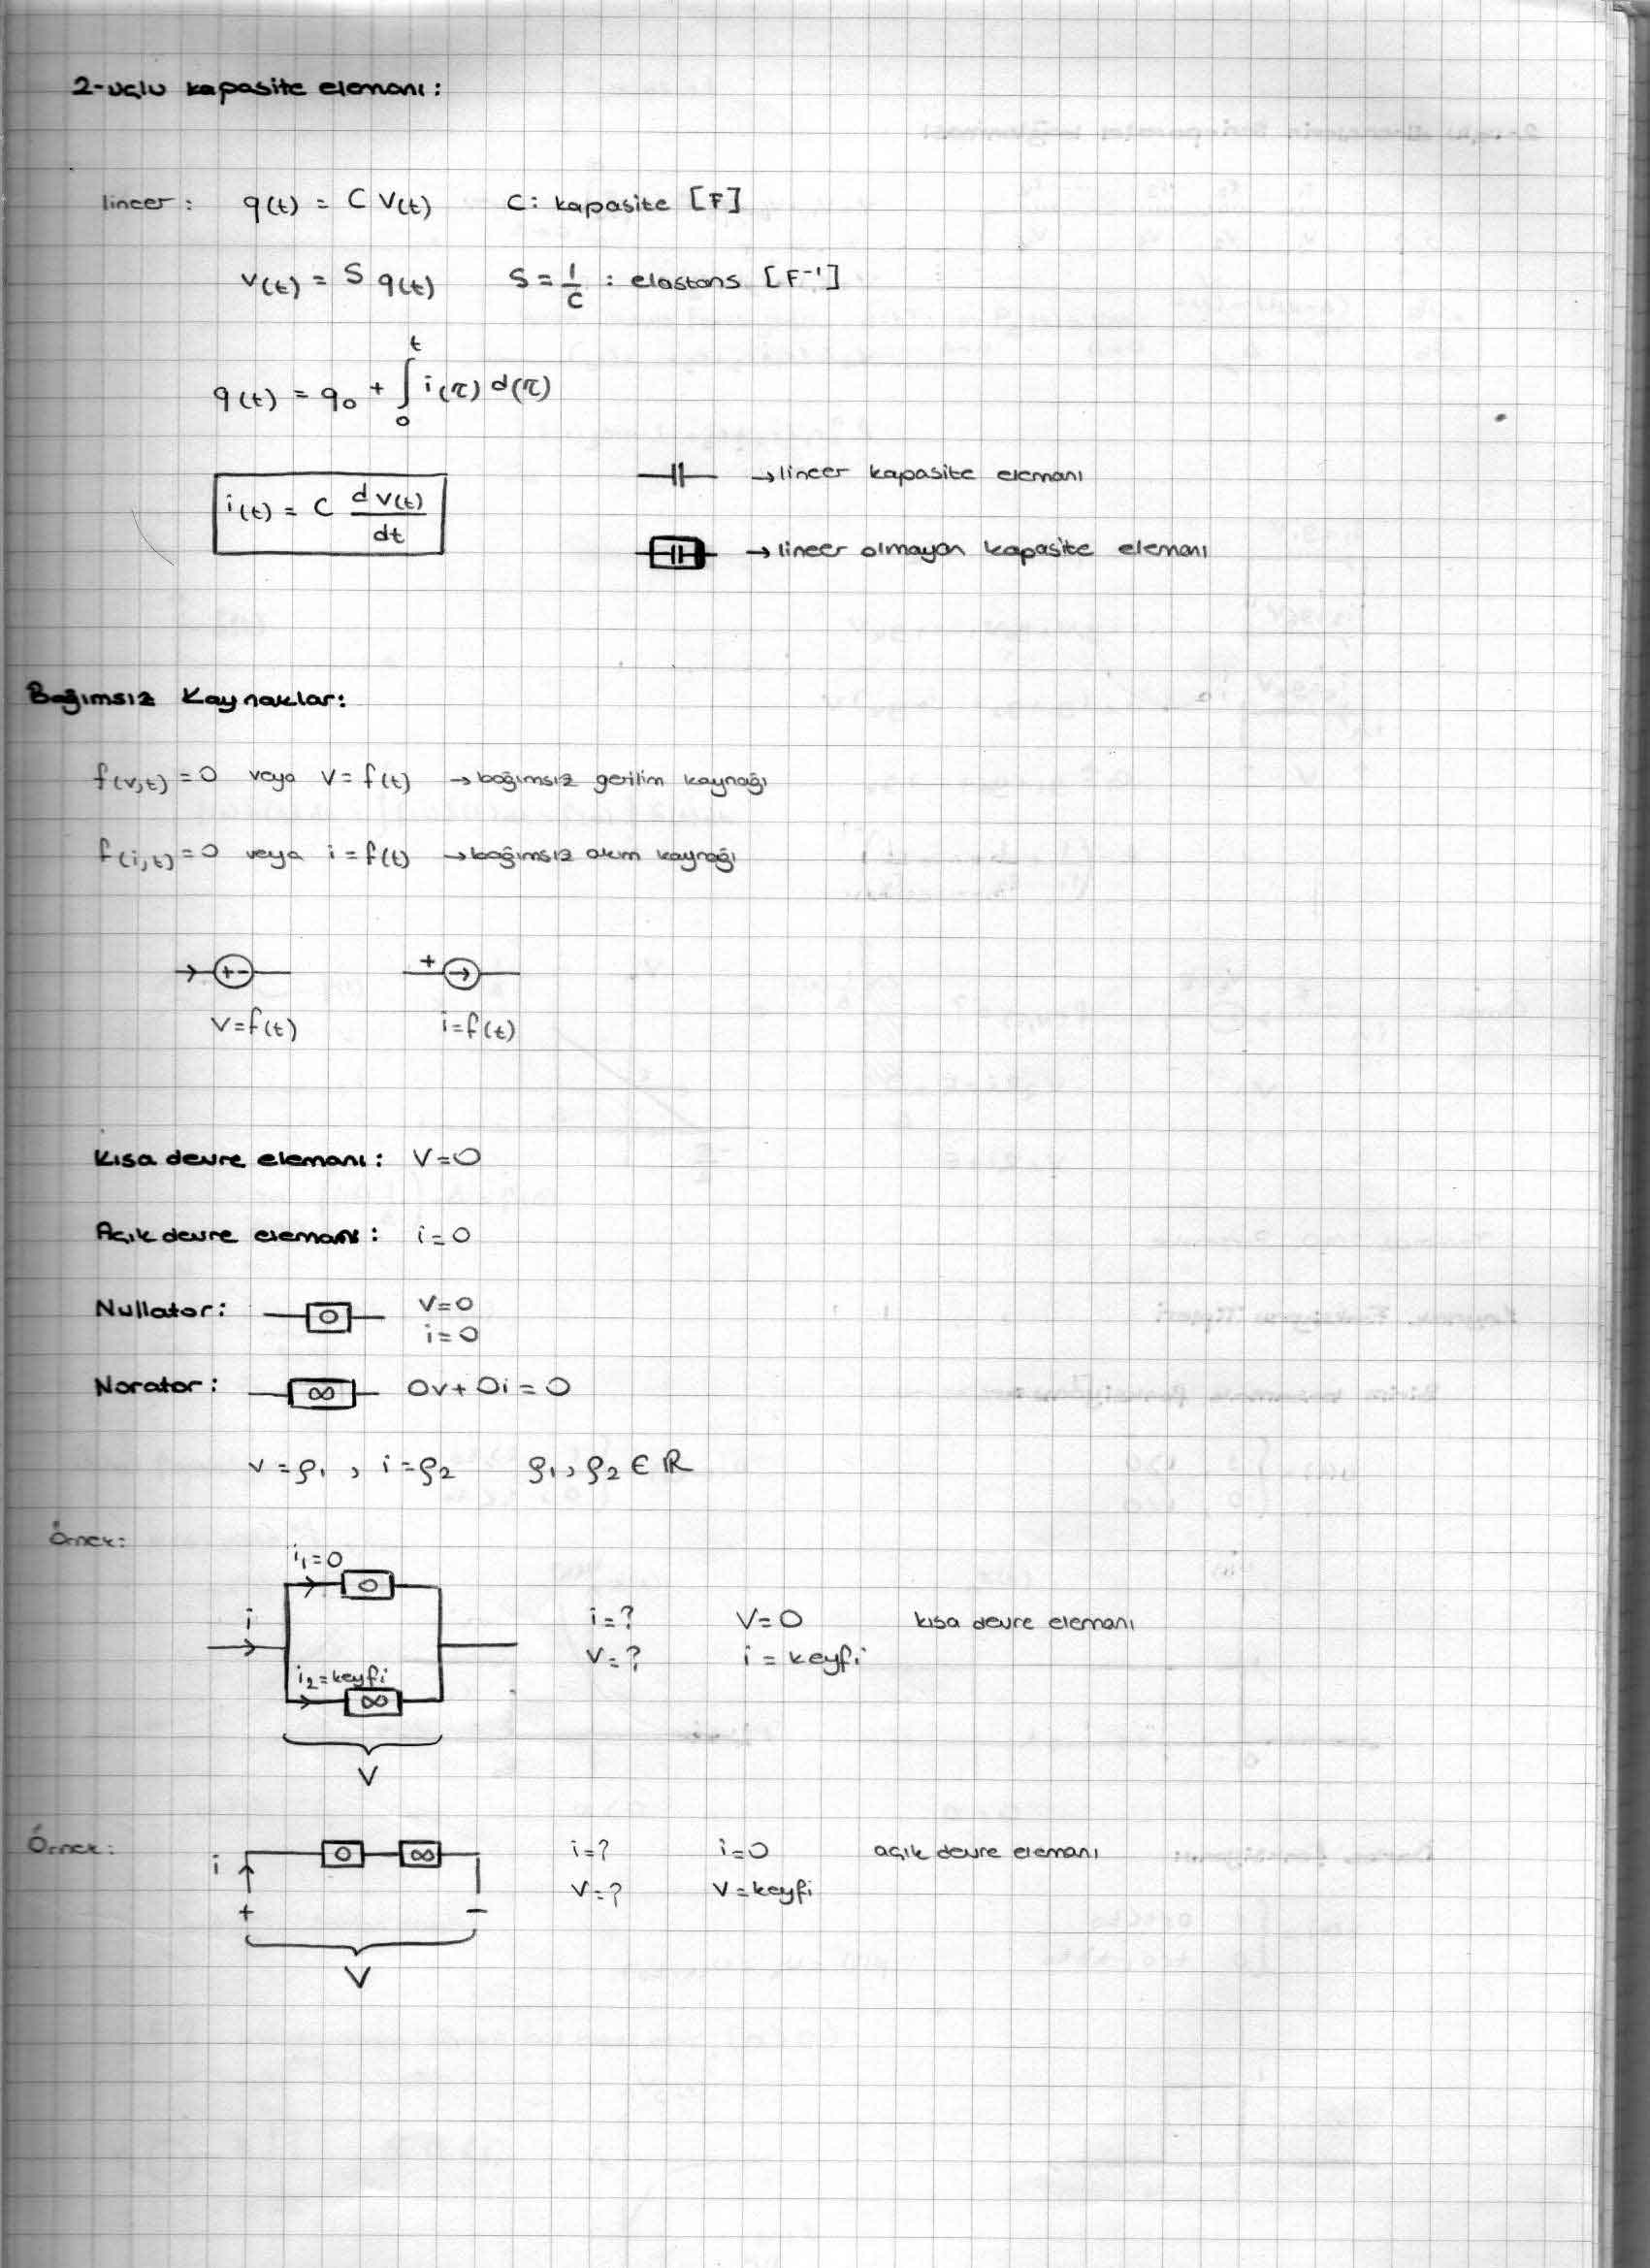 2-uçlu kapasite elemanı:
lineer: q(t) = C V(t) C: kapasite [F]
V(t) = S q(t) S = 1/C : elastans [F⁻¹]
q(t) = q₀ + ∫₀ᵗ i(τ) d(τ)
→ lineer kapasite elemanı
i(t) = C dV(t)/dt
→ lineer olmayan kapasite elemanı
Bağımsız Kaynaklar:
f(v,t) = 0 veya V = f(t) → bağımsız gerilim kaynağı
f(i,t) = 0 veya i = f(t) → bağımsız akım kaynağı
+ - + →
V = f(t) i = f(t)
Kısa devre elemanı: V = 0
Açık devre elemanı: i = 0
Nullator: 0 V = 0
i = 0
Norator: ∞ 0v + 0i = 0
v = ρ₁ , i = ρ₂ ρ₁, ρ₂ ∈ ℝ
Örnek:
i₁ = 0
0
i i = ? V = 0 kısa devre elemanı
V = ? i = keyfi
i₂ = keyfi
∞
V
Örnek: i 0 ∞ i = ? i = 0 açık devre elemanı
V = ? V = keyfi
+ −
V